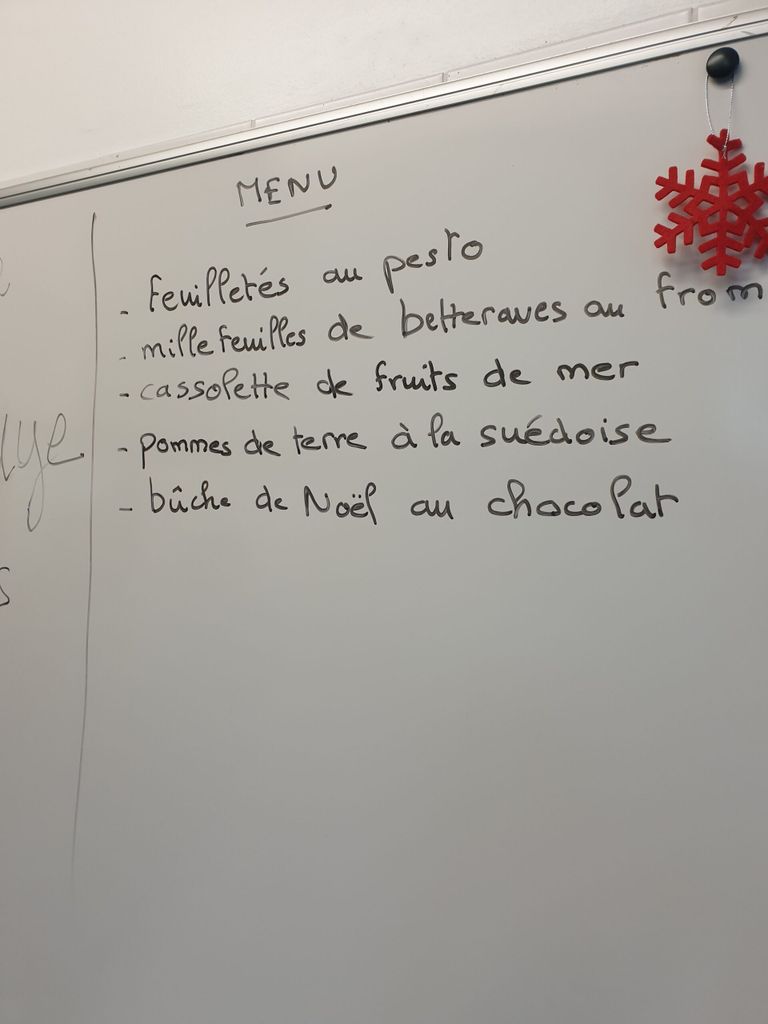 MENU
- feuilletés au pesto
- mille feuilles de betteraves au from
- cassolette de fruits de mer
- pommes de terre à la suédoise
- bûche de Noël au chocolat
lye
s